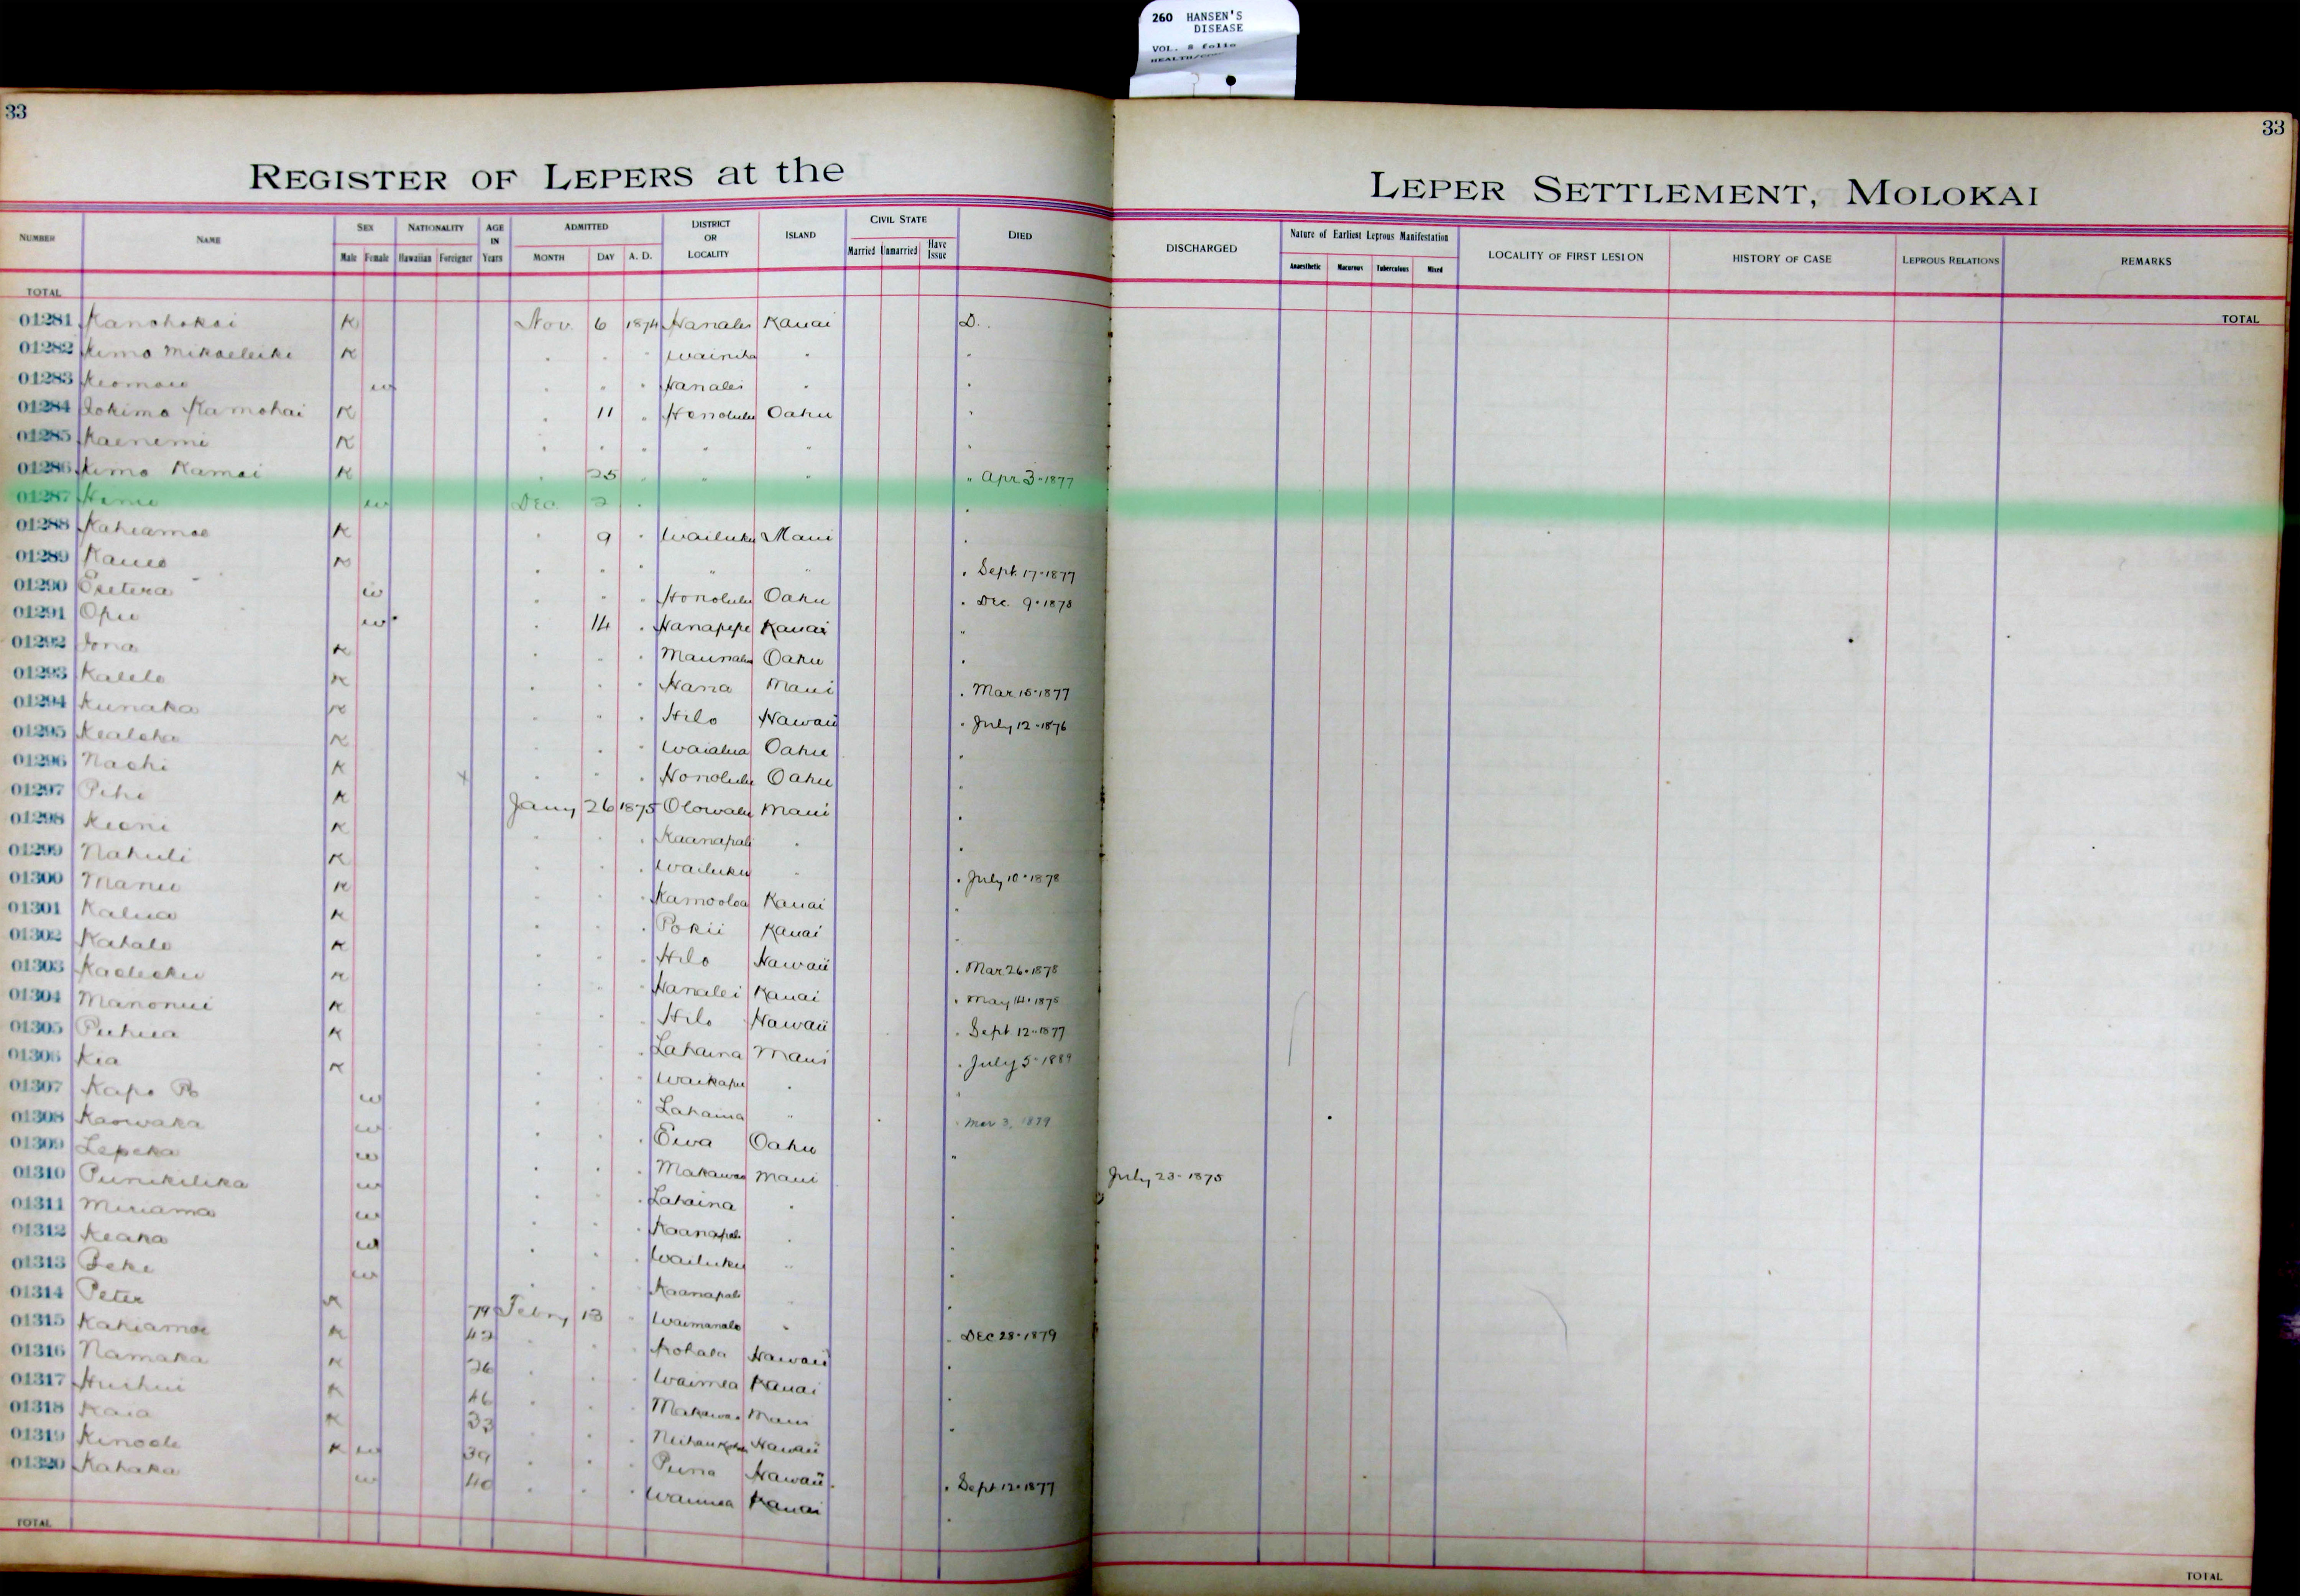 260 HANSEN'S
DISEASE
VOL. 8 folio
33
33
REGISTER OF LEPERS at the LEPER SETTLEMENT, MOLOKAI
NUMBER NAME SEX NATIONALITY AGE IN Years ADMITTED DISTRICT OR LOCALITY ISLAND CIVIL STATE DIED DISCHARGED Nature of Earliest Leprous Manifestation LOCALITY OF FIRST LESION HISTORY OF CASE LEPROUS RELATIONS REMARKS
Male Female Hawaiian Foreigner MONTH DAY A. D. Married Unmarried Have Issue Anaesthetic Macurous Tuberculous Mixed
TOTAL TOTAL
01281 Kanohokai K Nov. 6 1874 Hanalei Kauai D.
01282 Kimo Mikaeleiki K " " " Wainiha "
01283 Keomaw w " " " Hanalei "
01284 Iokimo Kamohai K " 11 " Honolulu Oahu "
01285 Kaenemi K " " " " " "
01286 Kimo Kamai K " 25 " " " " Apr. 3-1877
01287 w Dec 2 "
01288 Kahiamoe K " 9 " Wailuku Maui "
01289 Kaueo K " " " " " " Sept. 17-1877
01290 w " " " Honolulu Oahu " Dec. 9-1878
01291 Opu w " 14 " Hanapepe Kauai "
01292 Iona K " " " Oahu "
01293 Kalelo K " " " Hana Maui " Mar 15-1877
01294 Kunaka K " " " Hilo Hawaii " July 12-1876
01295 Kealoha K " " " Waialua Oahu "
01296 Naohi K " " " Honolulu Oahu "
01297 Pihi K Jany 26 1875 Olowalu Maui "
01298 Keoni K " " " Kaanapali " "
01299 Nahuli K " " " Wailuku " " July 10-1878
01300 Manu K " " " Kamooloa Kauai "
01301 Kalua K " " " Pokii Kauai "
01302 Kahalo K " " " Hilo Hawaii " Mar 26-1878
01303 K " " " Hanalei Kauai " May 14-1875
01304 Manonui K " " " Hilo Hawaii " Sept 12-1877
01305 Puhua K " " " Lahaina Maui " July 5-1889
01306 Kia K " " " Waikapu " "
01307 Kapo w " " " Lahaina " " Mar 3, 1879
01308 Kaowaka w " " " Ewa Oahu "
01309 Lepeka w " " " Makawao Maui July 23-1875
01310 Punikilika w " " " Lahaina " "
01311 Miriama w " " " Kaanapali " "
01312 Keaka w " " " Wailuku " "
01313 Beke w " " " Kaanapali " "
01314 Peter K 79 Febry 13 " Waimanalo " " Dec 28-1879
01315 Kahiamoe K 42 " " " Kohala Hawaii "
01316 Namaka K 26 " " " Waimea Kauai "
01317 Huihui K 46 " " " Makawao Maui "
01318 Kaia K 33 " " " Hawaii
01319 Kinoole K w 39 " " " Puna Hawaii " Sept 12-1877
01320 Kahaka w 40 " " " Waimea Kauai "
TOTAL TOTAL